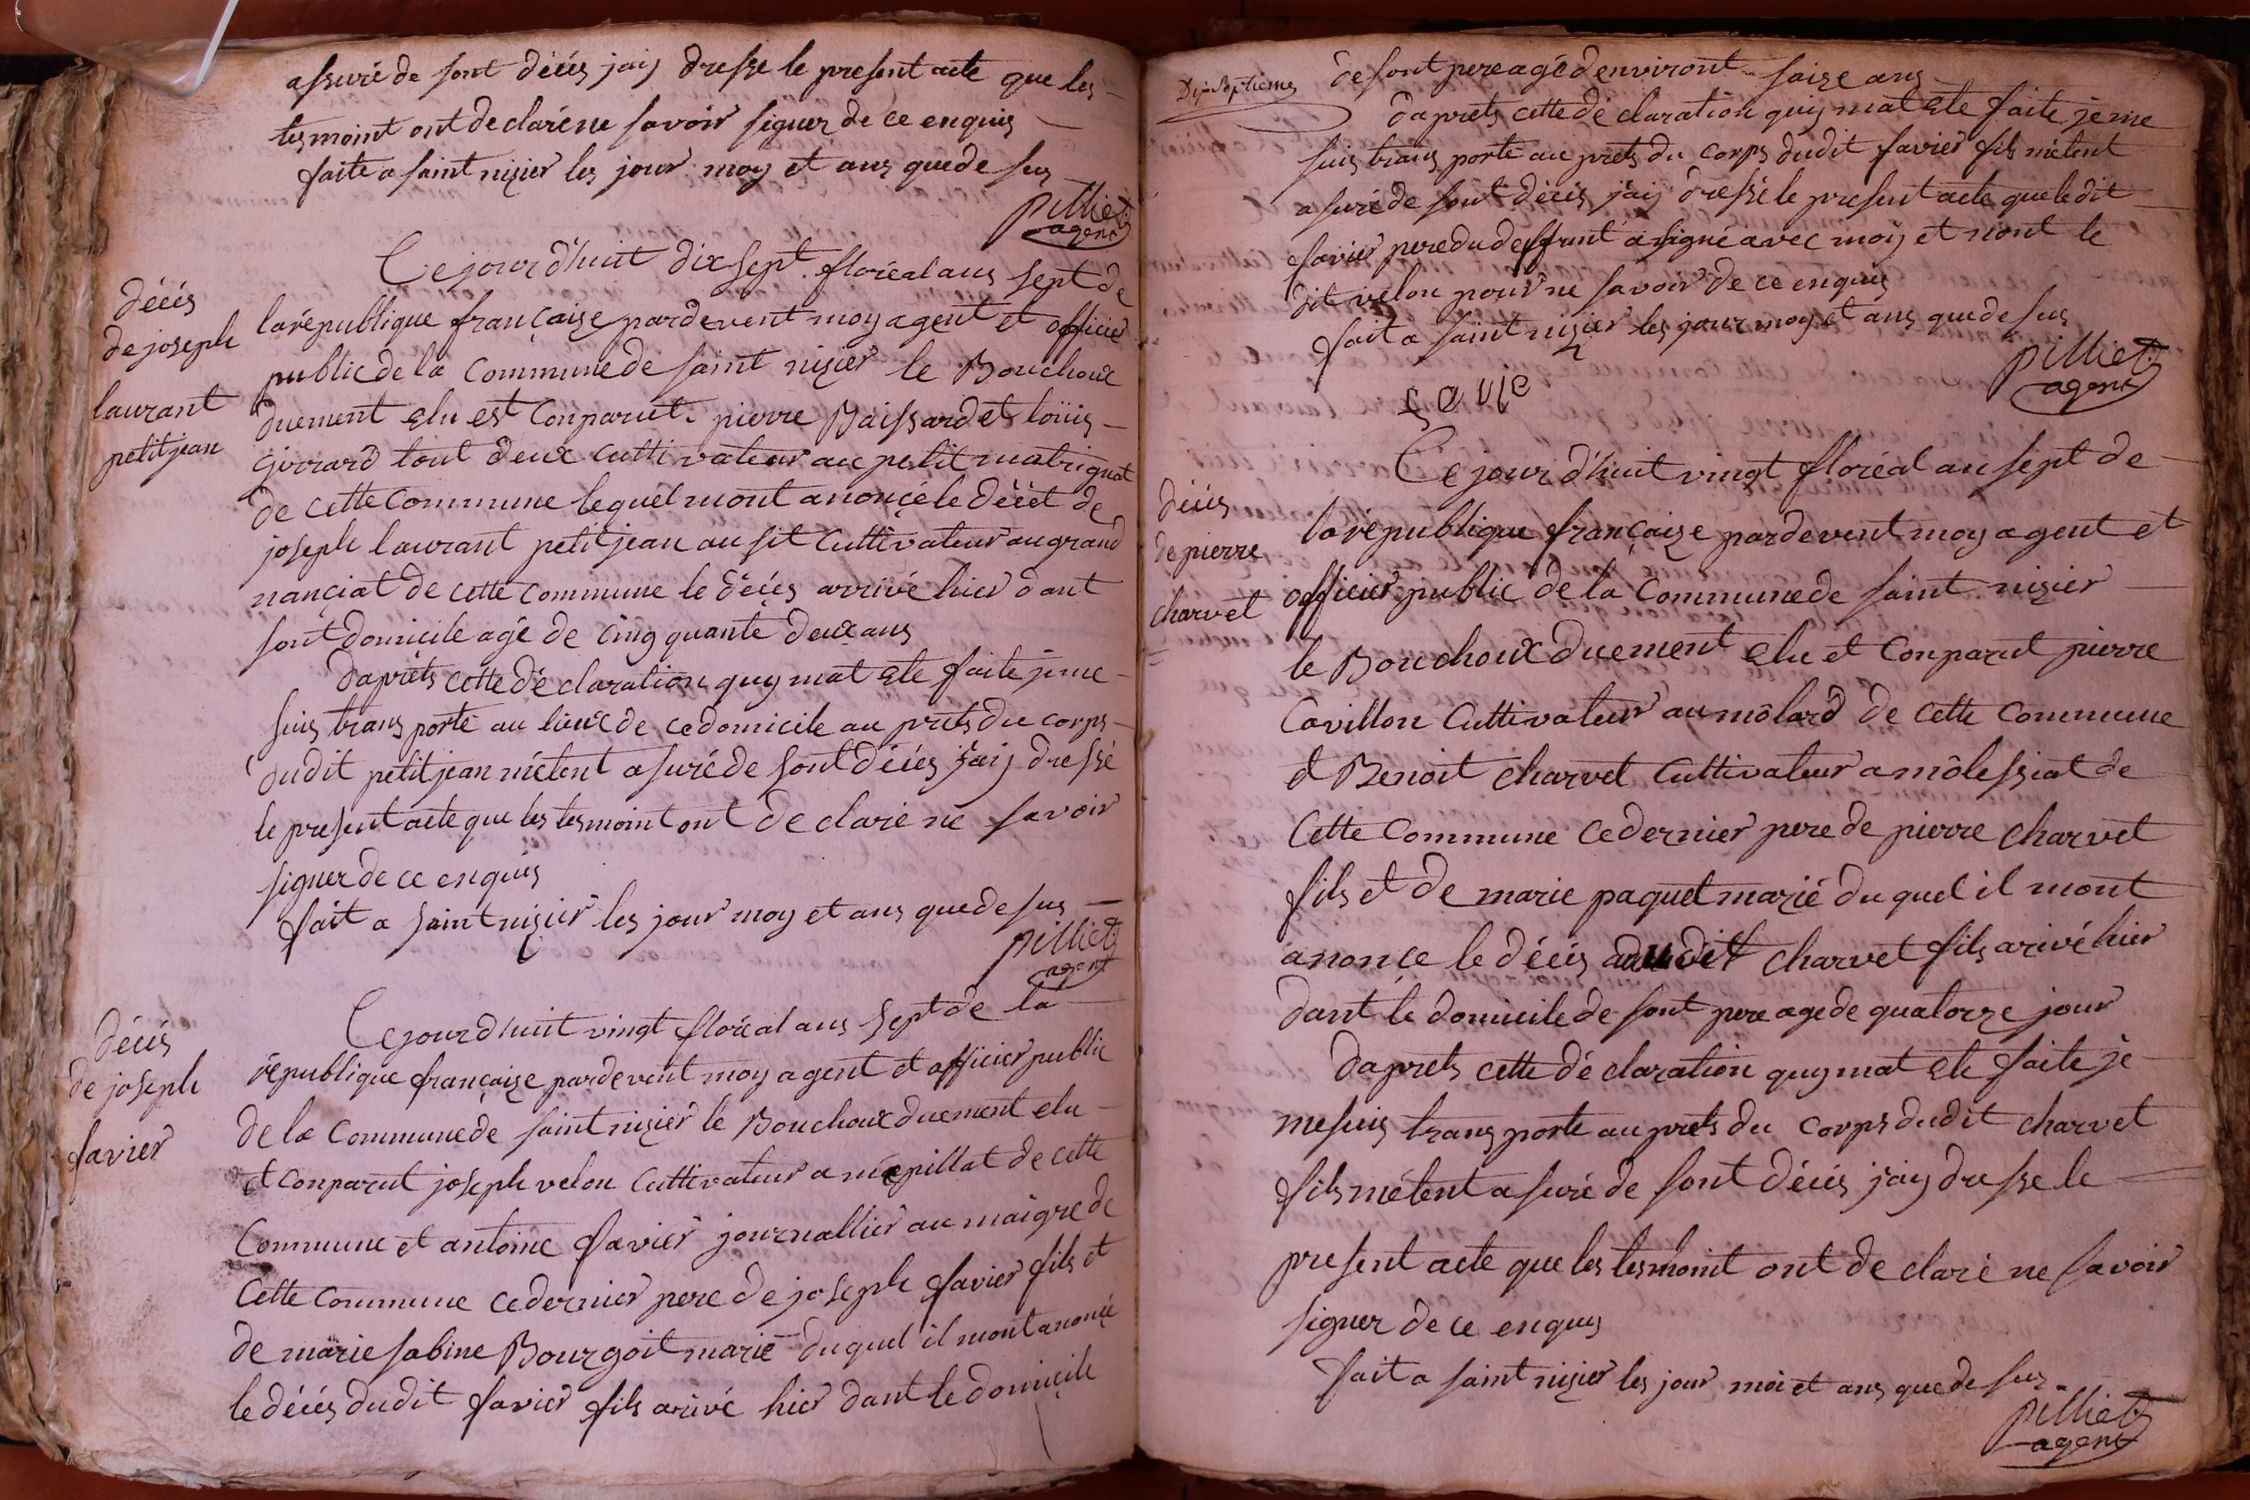 assuré de sont décés jay dresse le present acte que les
tesmoint ont declaré ne savoir signer de ce enquis
faite a saint nizier les jour moy et ans que de sus
pilliet
agent
décés
de joseph
laurant
petitjean
Ce jour d'huit dix sept floréal ans sept de
la république françaize pardevent moy agent et officier
public de la Commune de saint nizier le Bouchoux
duement elu est Conparut pierre Baissard et loüis
girrard tout deux Cuttivateur au petit matrignat
de cette Commune lequel mont anoncé le décet de
joseph laurant petitjean au sit Cuttivateur au grand
nanciat de cette Commune le décés arrivé hier dant
sont domicile agé de cinq quante deux ans
daprèts cette déclaration quy mat ete faite je me
suis trans porté au lieux de ce domicile au prets du corps
dudit petitjean métent asuré de sont décés jay dressé
le present acte que les tesmoint ont declaré ne savoir
signer de ce enquis
fait a saint nizier les jour moy et ans que de sus
pilliet
agent
décés
de joseph
favier
Ce jour d'huit vingt floréal ans sept de la
république françaize pardevent moy agent et officier public
de la Commune de saint nizier le Bouchoux duement elu
et Conparut joseph velon Cuttivateur a mépillat de cette
Commune et antoine favier journallier au maigre de
Cette Commune ce dernier pere de joseph favier fils et
de marie sabine Bourgoit marié duquel il mont anoncé
le décés dudit favier fils arivé hier dant le domicile
Dix septieme
de sont pere agé d'environt saize ans
daprets cette déclaration quy mat ete faite je me
suis trans porté au prets du corps dudit favier fils métent
asuré de sont décés jay dressé le present acte que ledit
favier pere du deffunt a signé avec moy et nont le
dit velon pour ne savoir de ce enquis
fait a saint nizier les jour moy et ans que de sus
pilliet
agent
décés
de pierre
charvet
Ce jour d'huit vingt floréal an sept de
la république françaize pardevent moy agent et
officier public de la Commune de saint nizier
le Bouchoux duement elu et Conparut pierre
Cavillon Cuttivateur au môlard de cette Commune
et Benoit charvet Cuttivateur a môlessiat de
Cette Commune ce dernier pere de pierre charvet
fils et de marie paquet marié duquel il mont
anonçe le décés dudit charvet fils arivé hier
dant le domicile de sont pere age de quatorze jour
daprets cette déclaration quy mat ete faite je
me suis trans porte au prets du corps dudit charvet
fils métent asuré de sont décés jay dresse le
present acte que les tesmoint ont declaré ne savoir
signer de ce enquis
fait a saint nizier les jour moi et ans que de sus
pilliet
agent